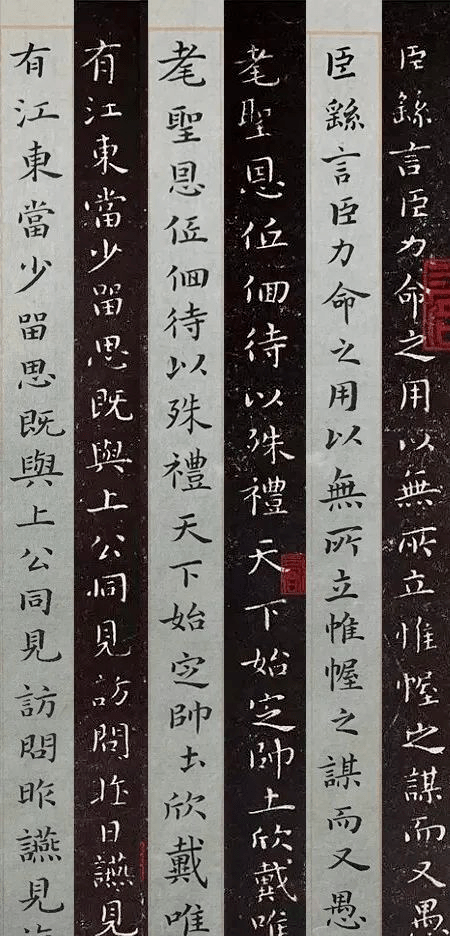 臣繇言臣力命之用以無所立惟幄之謀而又愚
臣繇言臣力命之用以無所立惟幄之謀而又愚
耄聖恩低佪待以殊禮天下始定帥土欣戴唯
耄聖恩低佪待以殊禮天下始定帥土欣戴唯
有江東當少留思既與上公同見訪問昨日讌見
有江東當少留思既與上公同見訪問昨讌見